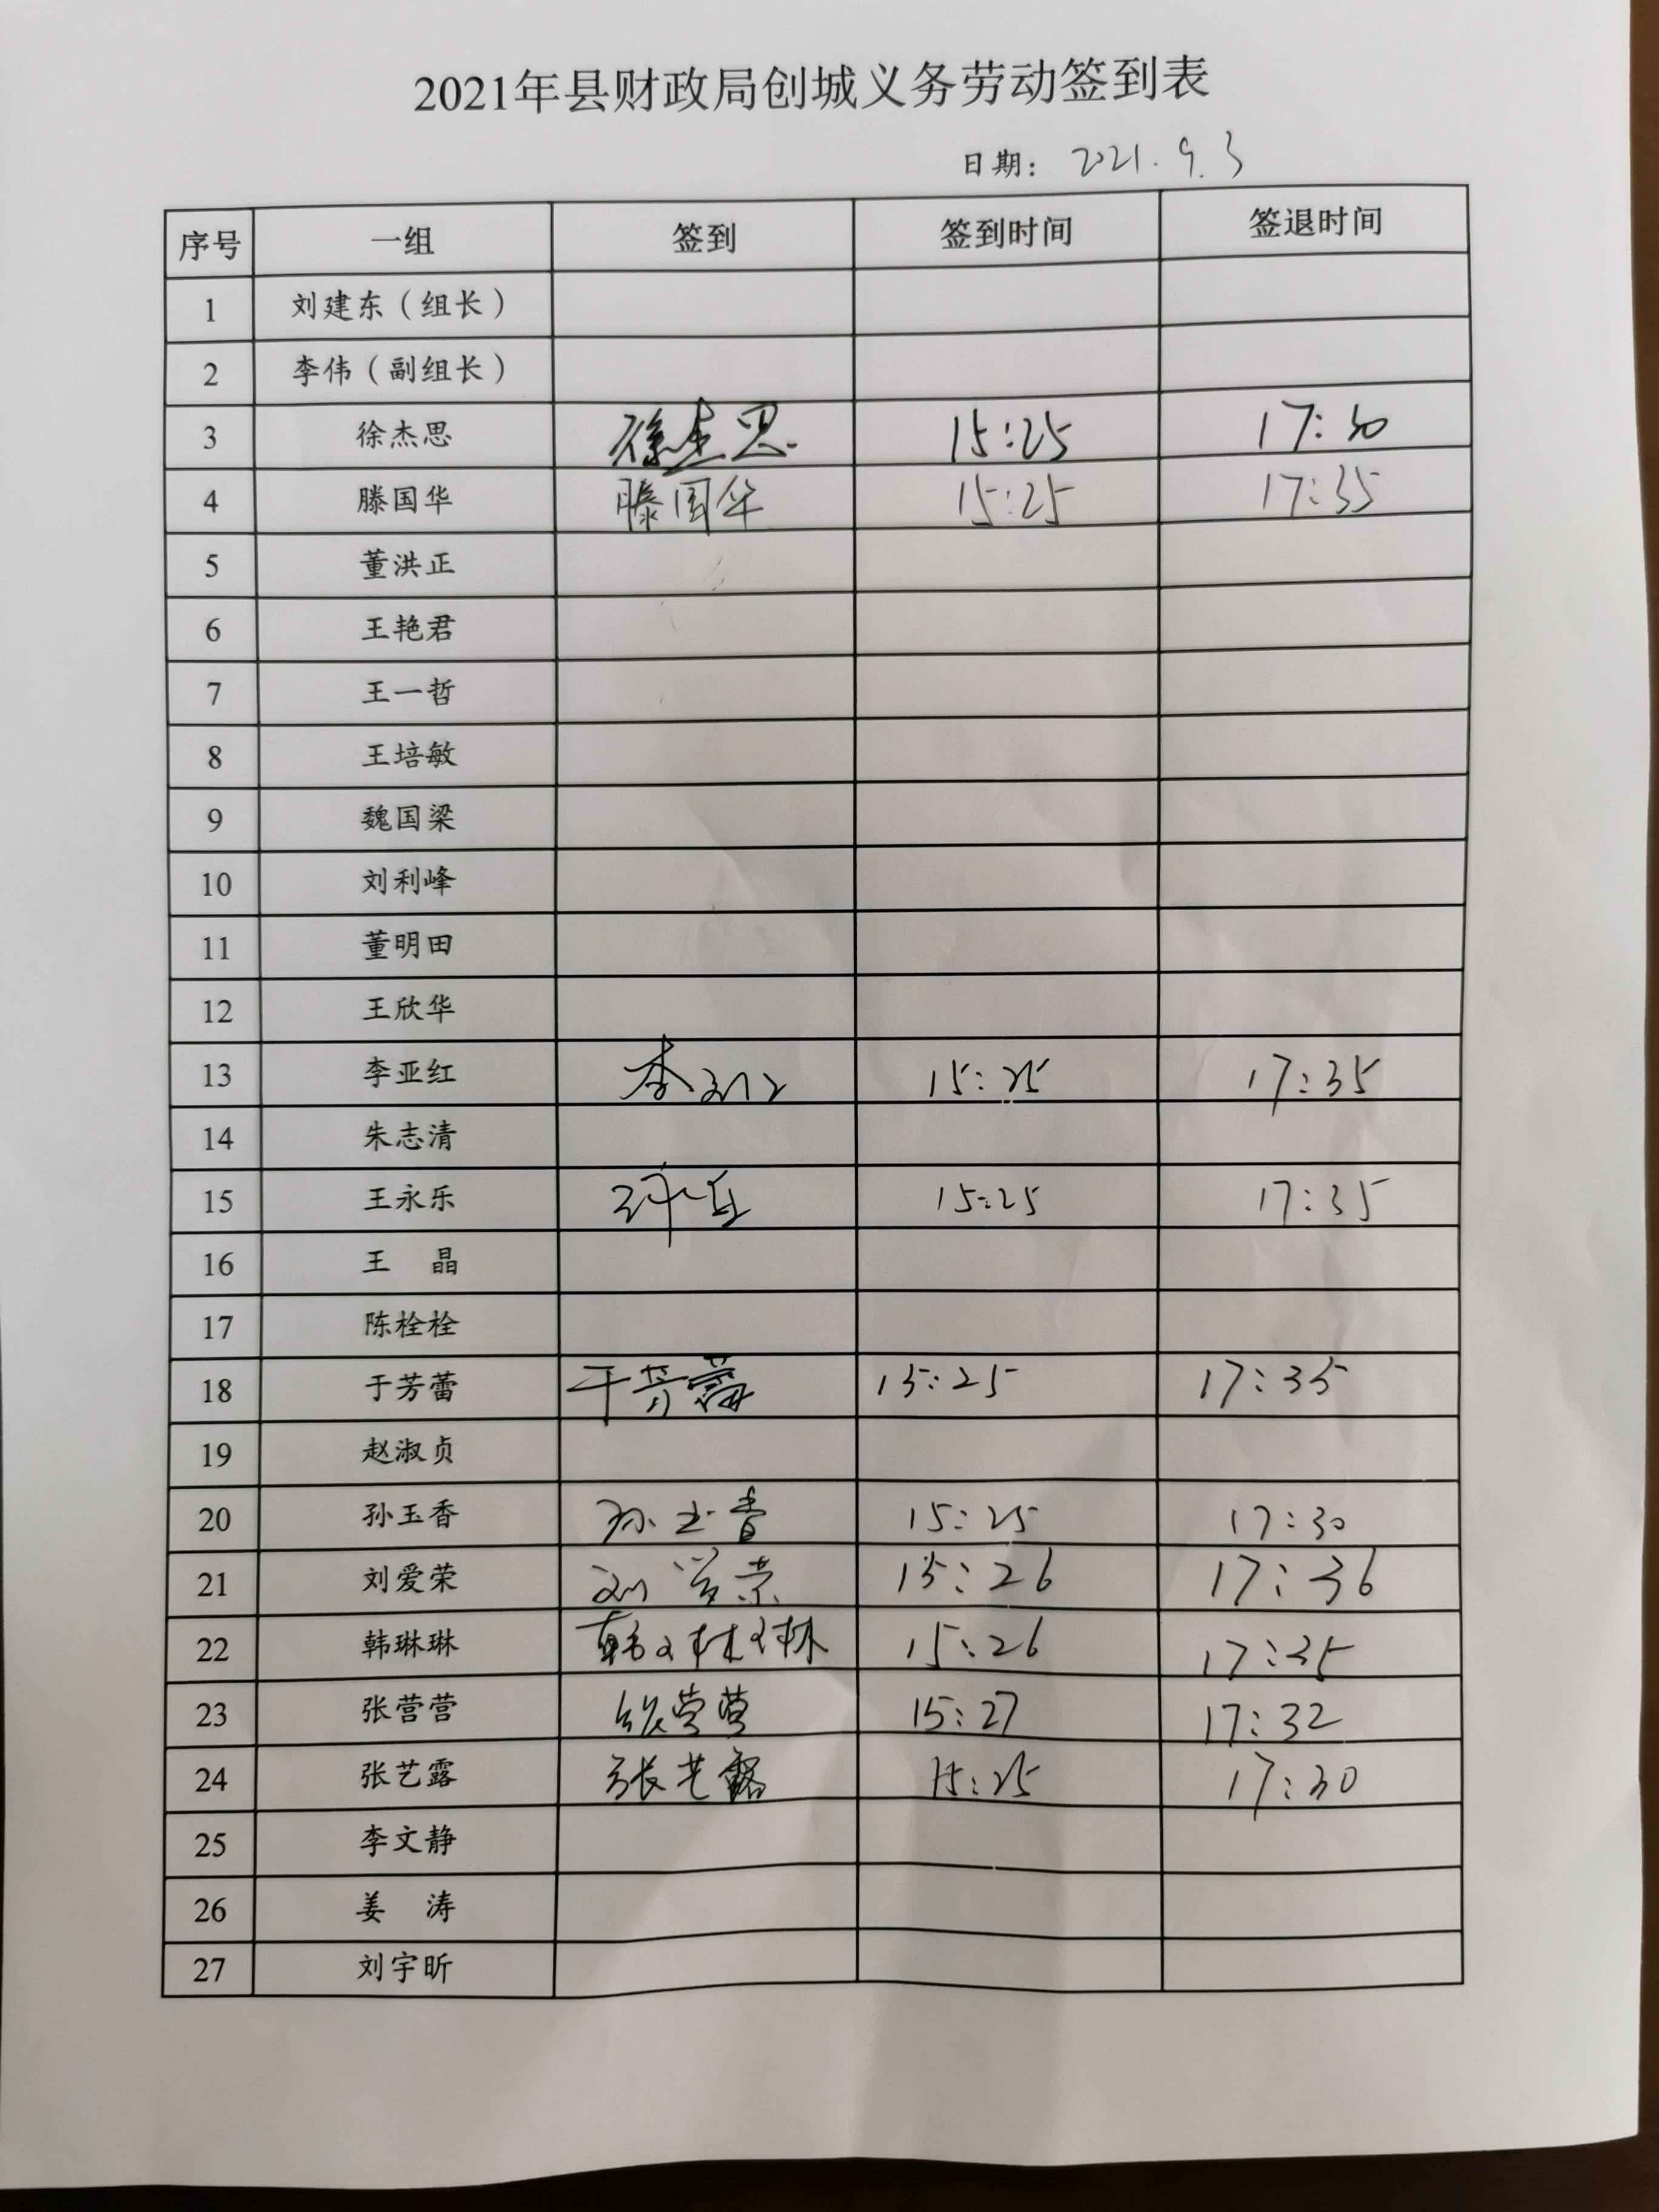 2021年县财政局创城义务劳动签到表
日期: 2021.9.3
序号 一组 签到 签到时间 签退时间
1 刘建东（组长）
2 李伟（副组长）
3 徐杰思 徐杰思 15:25 17:30
4 滕国华 滕国华 15:25 17:35
5 董洪正
6 王艳君
7 王一哲
8 王培敏
9 魏国梁
10 刘利峰
11 董明田
12 王欣华
13 李亚红 李亚红 15:25 17:35
14 朱志清
15 王永乐 王永乐 15:25 17:35
16 王 晶
17 陈栓栓
18 于芳蕾 于芳蕾 15:25 17:35
19 赵淑贞
20 孙玉香 孙玉香 15:25 17:30
21 刘爱荣 刘爱荣 15:26 17:36
22 韩琳琳 韩琳琳 15:26 17:35
23 张营营 张营营 15:27 17:32
24 张艺露 张艺露 15:25 17:30
25 李文静
26 姜 涛
27 刘宇昕